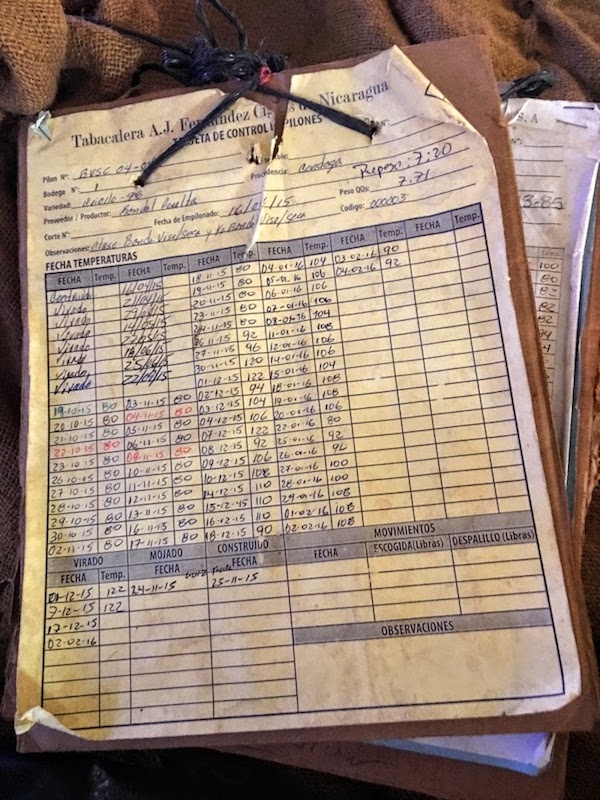 Tabacalera A.J. Fernandez Cigars de Nicaragua
TARJETA DE CONTROL DE PILONES
Pilon N°: BVSC 04-
Bodega N°: 1
Procedencia: Condega
Reposo: 7:20
Variedad: criollo-98
Peso QQs: 7.71
Proveedor / Productor: Peralta
Corte N°:
Fecha de Empilonado: 16/ /15
Codigo: 000003
Observaciones: Clase Banda Viso/seco y Banda Viso/seco
FECHA TEMPERATURAS
FECHA Temp. FECHA Temp. FECHA Temp. FECHA Temp. FECHA Temp. FECHA Temp.
18-11-15 80 04-01-16 104 03-02-16 90
Virado 19-11-15 80 05-01-16 106 04-02-16 92
Virado 20-11-15 80 06-01-16 106
Virado 23-11-15 80 07-01-16 106
Virado 24-11-15 80 08-01-16 104
Virado 26-11-15 92 11-01-16 108
Virado 27-11-15 96 12-01-16 106
Virado 30-11-15 120 14-01-16 106
01-12-15 122 15-01-16 104
02-12-15 94 18-01-16 108
19-10-15 80 03-11-15 80 03-12-15 104 19-01-16 108
20-10-15 80 04-11-15 80 04-12-15 106 20-01-16 106
21-10-15 80 05-11-15 80 07-12-15 122 22-01-16 80
22-10-15 80 06-11-15 80 08-12-15 92 25-01-16 92
23-10-15 80 09-11-15 80 09-12-15 106 26-01-16 96
26-10-15 80 10-11-15 80 10-12-15 108 27-01-16 100
27-10-15 80 11-11-15 80 14-12-15 110 28-01-16 100
28-10-15 80 12-11-15 80 15-12-15 110 29-01-16 108
29-10-15 80 13-11-15 80 16-12-15 110 01-02-16 108
30-10-15 80 16-11-15 80 18-12-15 90 02-02-16 108
02-11-15 80 17-11-15 80
VIRADO MOJADO CONSTRUIDO MOVIMIENTOS
FECHA Temp. FECHA FECHA FECHA ESCOGIDA(Libras) DESPALILLO (Libras)
01-12-15 122 24-11-15 25-11-15
7-12-15 122
17-12-15
02-02-16
OBSERVACIONES
S. A
Temp.
100